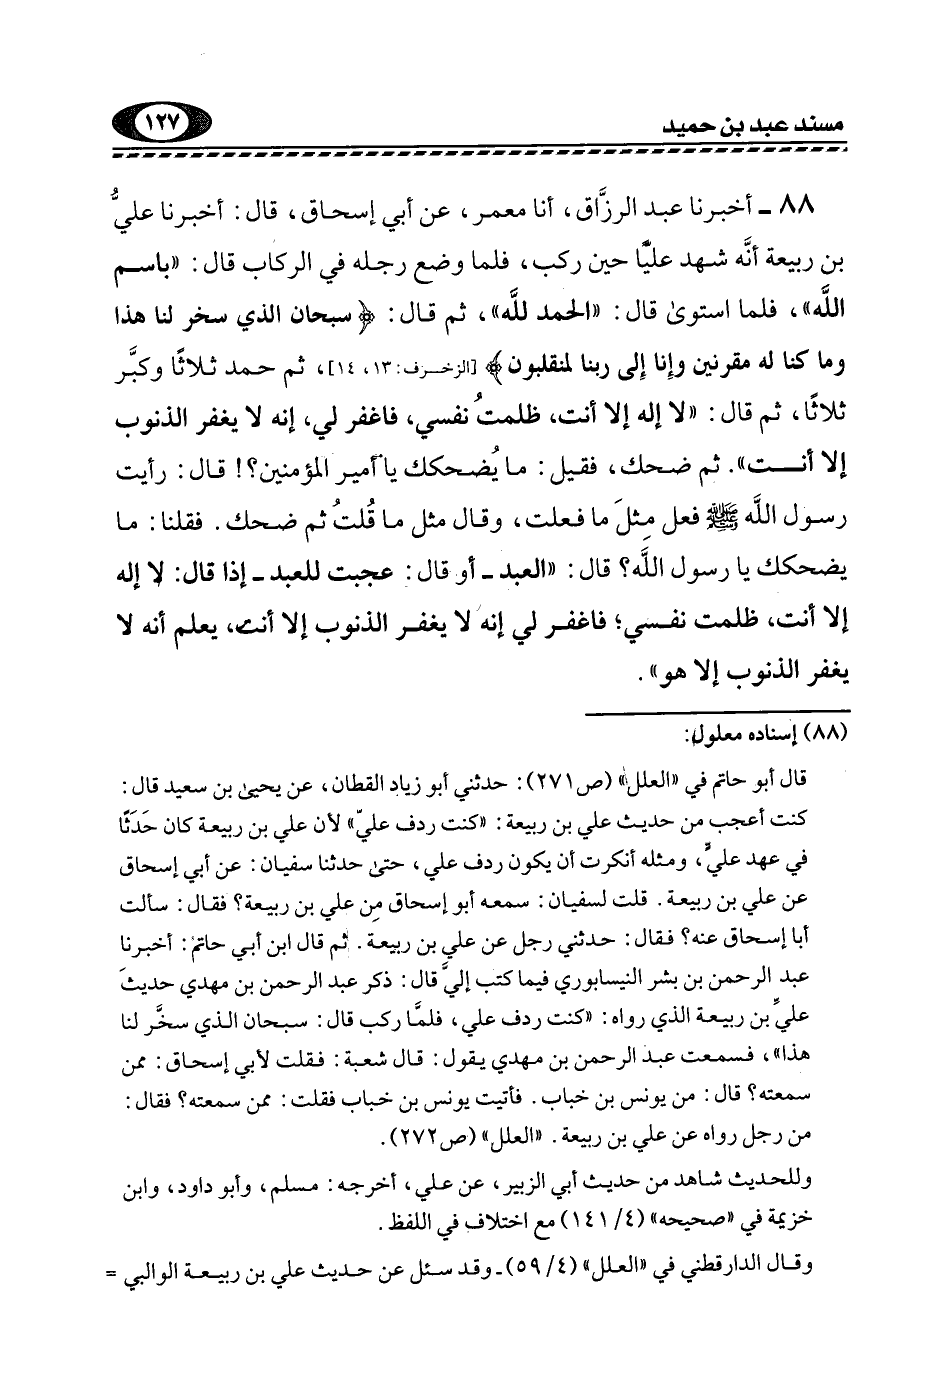 مسند عبد بن حميد
١٢٧
٨٨ ـ أخبرنا عبد الرزَّاق، أنا معمر، عن أبي إسحاق، قال: أخبرنا عليُّ
بن ربيعة أنَّه شهد عليًّا حين ركب، فلما وضع رجله في الركاب قال: «باسم
اللَّه»، فلما استوىٰ قال: «الحمد للَّه»، ثم قال: ﴿سبحان الذي سخر لنا هذا
وما كنا له مقرنين وإنا إلى ربنا لمنقلبون﴾ [الزخرف: ١٣، ١٤]، ثم حمد ثلاثًا وكبَّر
ثلاثًا، ثم قال: «لا إله إلا أنت، ظلمتُ نفسي، فاغفر لي، إنه لا يغفر الذنوب
إلا أنت». ثم ضحك، فقيل: ما يُضحكك يا أمير المؤمنين؟! قال: رأيت
رسول اللَّه ﷺ فعل مِثلَ ما فعلت، وقال مثل ما قُلتُ ثم ضحك. فقلنا: ما
يضحكك يا رسول اللَّه؟ قال: «العبد ـ أو قال: عجبت للعبد ـ إذا قال: لا إله
إلا أنت، ظلمت نفسي؛ فاغفر لي إنه لا يغفر الذنوب إلا أنت، يعلم أنه لا
يغفر الذنوب إلا هو».
(٨٨) إسناده معلول:
قال أبو حاتم في «العلل» (ص٢٧١): حدثني أبو زياد القطان، عن يحيىٰ بن سعيد قال:
كنت أعجب من حديث علي بن ربيعة: «كنت ردف عليّ» لأن علي بن ربيعة كان حَدَثًا
في عهد عليٍّ، ومثله أنكرت أن يكون ردف علي، حتىٰ حدثنا سفيان: عن أبي إسحاق
عن علي بن ربيعة. قلت لسفيان: سمعه أبو إسحاق مِن علي بن ربيعة؟ فقال: سألت
أبا إسحاق عنه؟ فقال: حدثني رجل عن علي بن ربيعة. ثم قال ابن أبي حاتم: أخبرنا
عبد الرحمن بن بشر النيسابوري فيما كتب إليَّ قال: ذكر عبد الرحمن بن مهدي حديثَ
عليِّ بن ربيعة الذي رواه: «كنت ردف علي، فلمَّا ركب قال: سبحان الذي سخَّر لنا
هذا»، فسمعت عبد الرحمن بن مهدي يقول: قال شعبة: فقلت لأبي إسحاق: ممن
سمعته؟ قال: من يونس بن خباب. فأتيت يونس بن خباب فقلت: ممن سمعته؟ فقال:
من رجل رواه عن علي بن ربيعة. «العلل» (ص٢٧٢).
وللحديث شاهد من حديث أبي الزبير، عن علي، أخرجه: مسلم، وأبو داود، وابن
خزيمة في «صحيحه» (٤/ ١٤١) مع اختلاف في اللفظ.
وقال الدارقطني في «العلل» (٤/ ٥٩) ـ وقد سئل عن حديث علي بن ربيعة الوالبي =